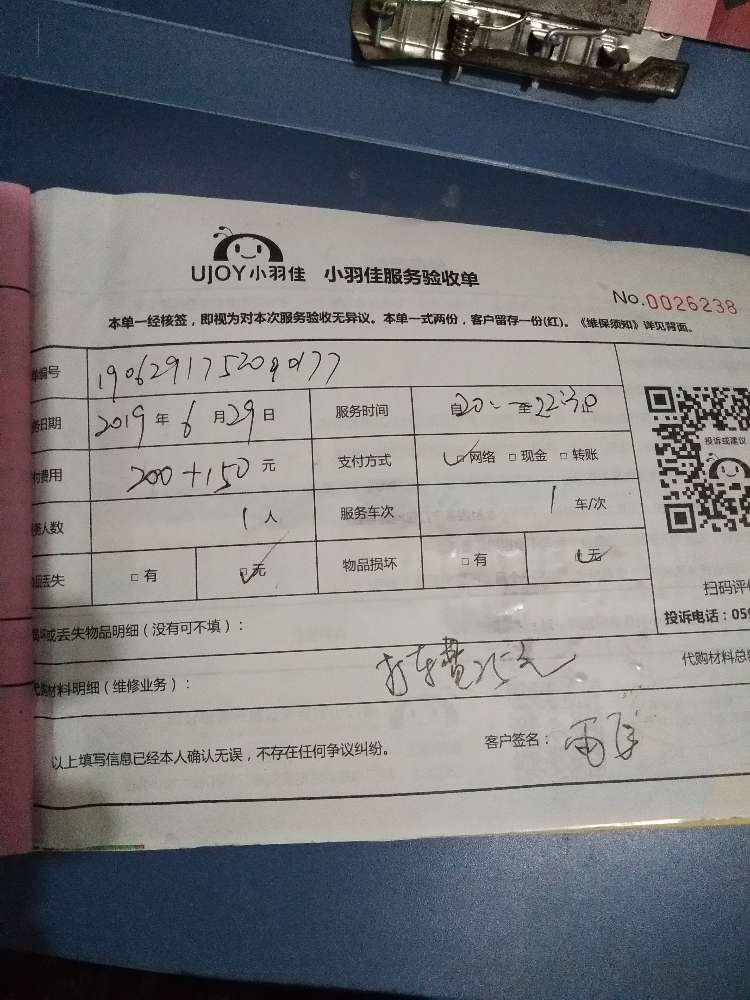 UJOY小羽佳 小羽佳服务验收单
No.0026238
本单一经核签，即视为对本次服务验收无异议。本单一式两份，客户留存一份(红)。《维保须知》详见背面。
单编号 190629175209177
务日期 2019 年 6 月 29 日 服务时间 自 20: 至 22:30 止
付费用 200+150 元 支付方式 □网络 □现金 □转账
务人数 1 人 服务车次 1 车/次
品丢失 □有 □无 物品损坏 □有 □无
投诉或建议
扫码评价
投诉电话：059
损坏或丢失物品明细（没有可不填）：
代购材料明细（维修业务）： 打车费25元 代购材料总
以上填写信息已经本人确认无误，不存在任何争议纠纷。 客户签名：